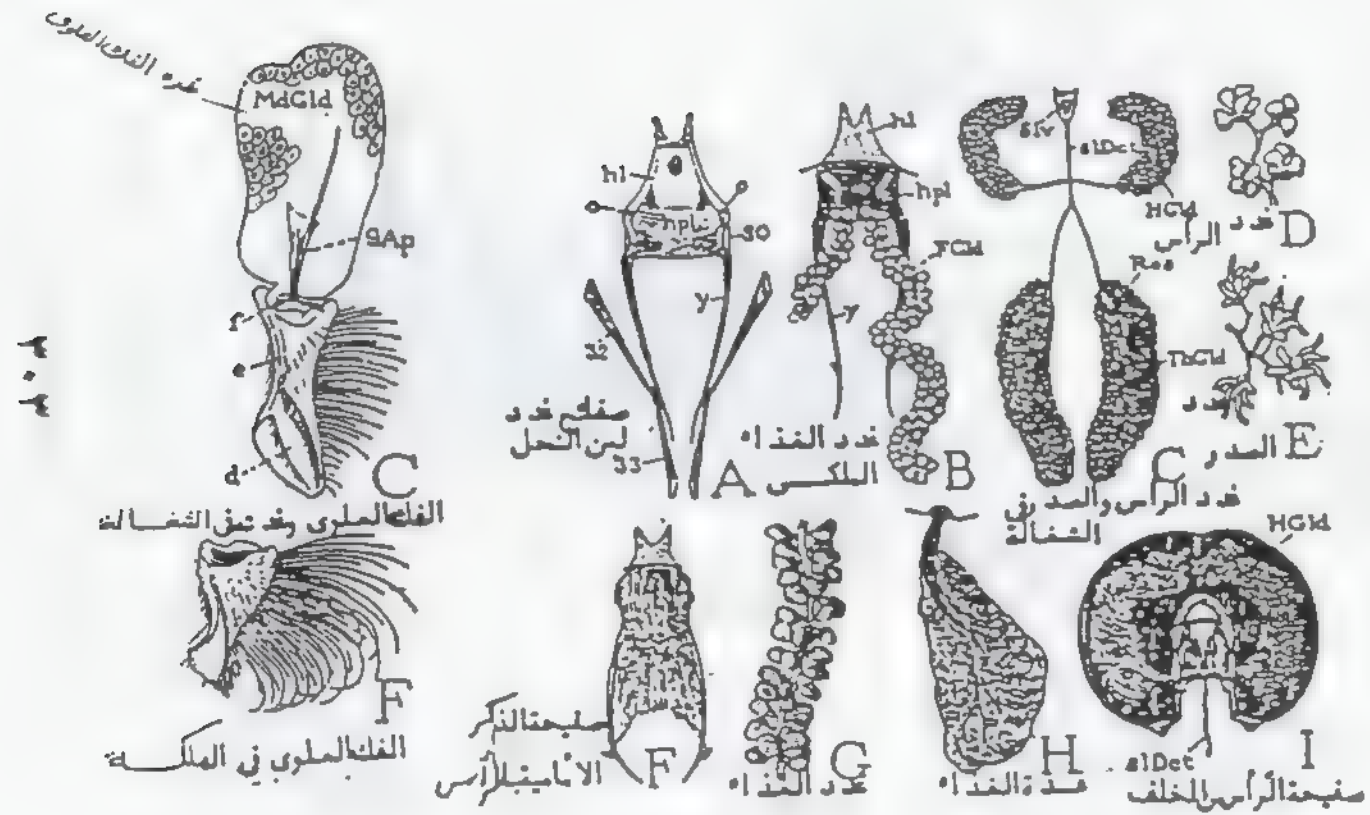 غده الفك العلوى
MdGld
gAp
f
e
d
C
الفك العلوى وغدته فى الشغالة
F
الفك العلوى في الملكة
٢٠٢
hl
o
o
hpl
30
y
32
33
غدد
لبن النحل
A
hl
hpl
FGld
y
غدد الغذاء
الملكى
B
slv
slDct
HGld
Res
ThGld
C
غدد الرأس والصدر فى
الشغالة
غدد
الرأس
D
غدد
الصدر
E
صفيحة الذكر
الأمامية للرأس
F
G
غدد الغذاء
H
غدة الغذاء
HGld
slDct
I
صفيحة الرأس الخلف